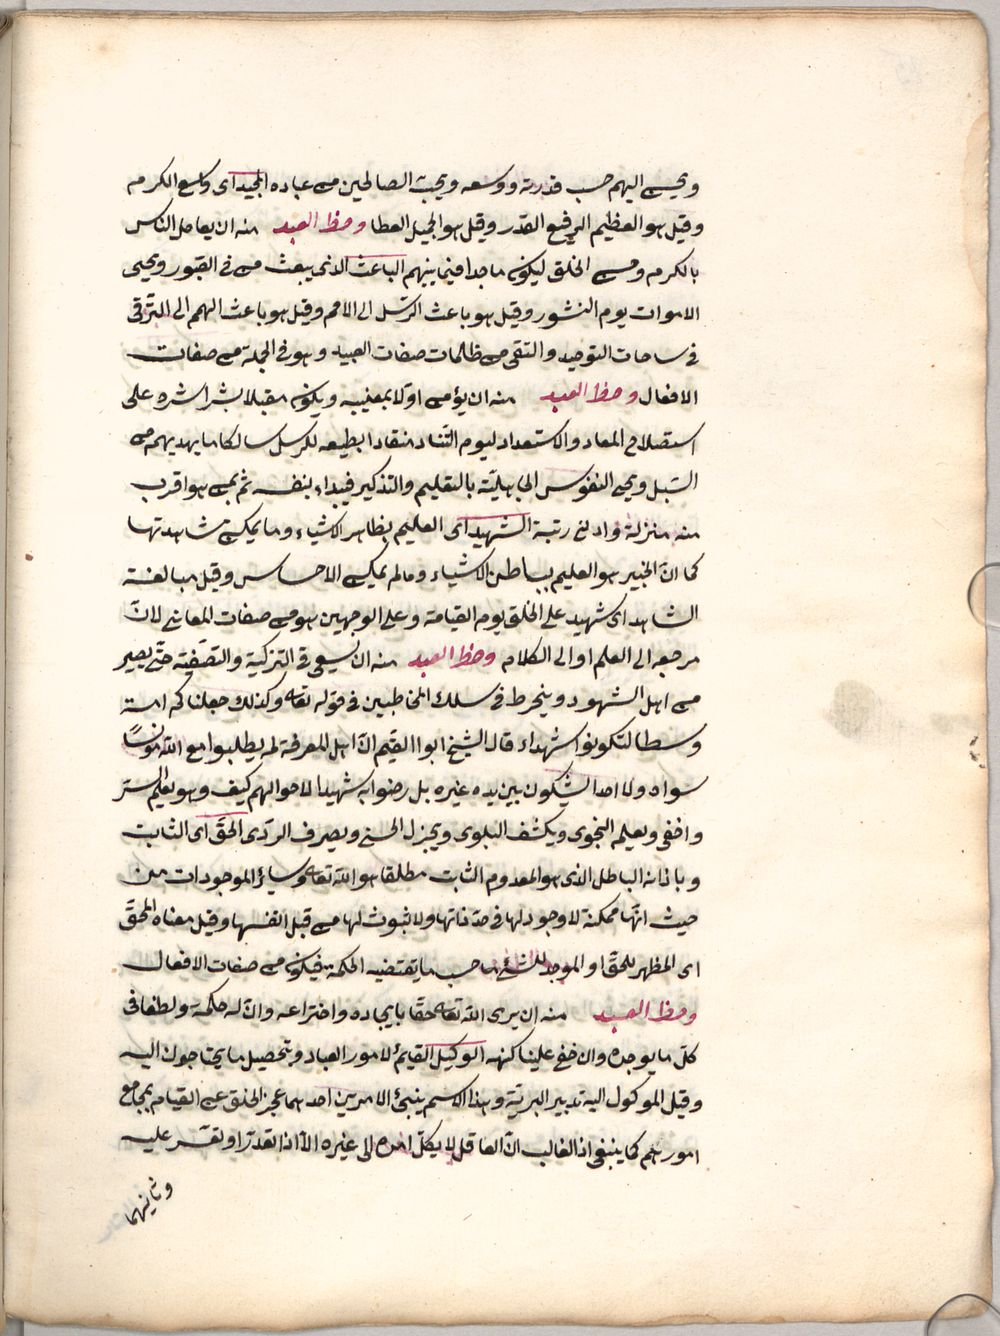 ويحسن اليهم حسب قدرته ووسعه ويحب الصالحين من عباده المجيد اى واسع الكرم
وقيل هو العظيم الرفيع القدر وقيل هو الجميل العطا وحظ العبد منه ان يعامل الناس
بالكرم وحسن الخلق ليكون ماجدا فيما بينهم الباعث الذى يبعث من فى القبور ويحيى
الاموات يوم النشور وقيل هو باعث الرسل الى الامم وقيل هو باعث الهمم الى الترقى
فى ساحات التوحيد والتنقى من ظلمات صفات العبيد وهو فى الجملة من صفات
الافعال وحظ العبد منه ان يؤمن اولا بمعنييه ويكون مقبلا بشراشره على
استصلاح المعاد والاستعداد ليوم التناد منقادا بطبعه للرسل سالكا ما يهديهم من
السبل ويحيى النفوس الجاهلية بالتعليم والتذكير فيبداء بنفسه ثم بمن هو اقرب
منه منزلة وادنى رتبة الشهيد اى العليم بظاهر الاشياء وما يمكن مشاهدتها
كما ان الخبير هو العليم بباطن الاشياء وما لم يمكن الاحساس وقيل مبالغة
الشاهد اى شهيد على الخلق يوم القيامة وعلى الوجهين هو من صفات المعانى لان
مرجعه الى العلم او الى الكلام وحظ العبد منه ان يسعى فى التزكية والتصفية حتى يصير
من اهل الشهود وينخرط فى سلك المخاطبين فى قوله تعا وكذلك جعلناكم امة
وسطا لتكونوا شهداء قال الشيخ ابو القيم ان اهل المعرفة لم يطلبوا مع الله مونسا
سواه ولا احدا يشكون بين يده غيره بل رضوا به شهيدا لاحوالهم كيف وهو يعلم السر
واخفى ويعلم النجوى ويكشف البلوى ويجزل الحسنى ويصرف الردى الحق اى الثابت
وباذائه الباطل الذى هو المعدوم الثابت مطلقا هو الله تعا وسائر الموجودات من
حيث انها ممكنة لا وجود لها فى حد ذاتها ولا ثبوت لها من قبل انفسها وقيل معناه المحق
اى المظهر للحق او الموجد للشئ حسب ما يقتضيه الحكمة فيكون من صفات الافعال
وحظ العبد منه ان يرى الله تعا حقا بايجاده واختراعه وان له حكمة ولطفا فى
كل ما يوجده وان خفى علينا كنهه الوكيل القايم لامور العباد وبتحصيل ما يحتاجون اليه
وقيل الموكول اليه تدبير البرية وهذا الاسم ينبئ الامرين احدهما عجز الخلق عن القيام بمجامع
امورهم كما ينبغى اذ الغالب ان العاقل لا يكل امره الى غيره الا اذا تعذر او تعسر عليه
وثانيهما